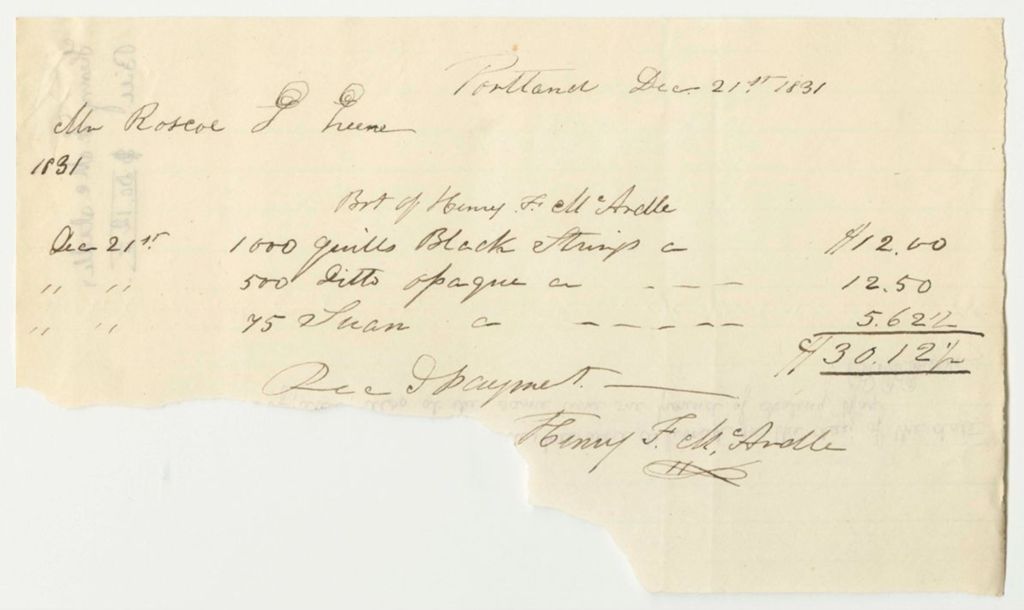 Portland Dec. 21st 1831
Mr Roscoe G Greene
1831
Bot of Henry F. McArdle
Dec 21st 1000 quills Black Strings a $12.00
" " 500 Ditto opaque a - - - 12.50
" " 75 Swan a - - - - - 5.62 1/2
$30.12 1/2
Rec d payment.
Henry F. McArdle